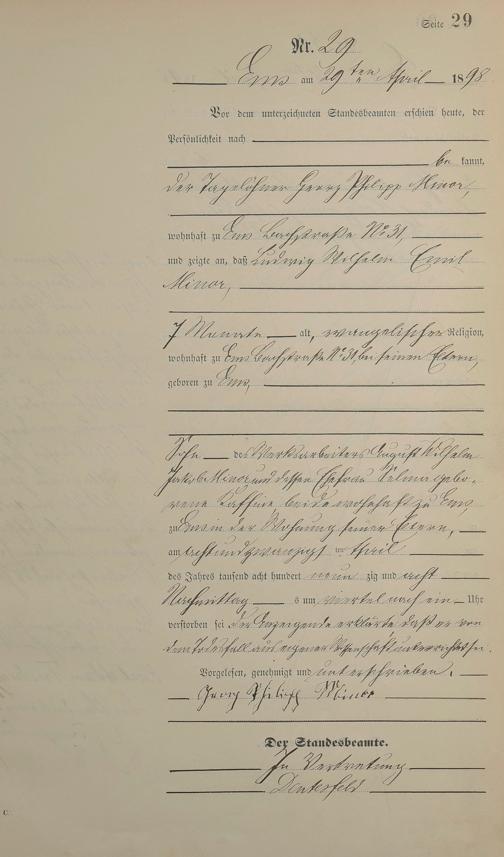 Seite 29
Nr. 29
Ems am 29ten April 1898
Vor dem unterzeichneten Standesbeamten erschien heute, der
Persönlichkeit nach
be kannt,
der Tagelöhner Georg Philipp Minor,
wohnhaft zu Ems Bachstraße No 31,
und zeigte an, daß Ludwig Wilhelm Emil
Minor,
7 Monate alt, evangelischer Religion,
wohnhaft zu Ems Bachstraße No 31, bei seinen Eltern,
geboren zu Ems,
Sohn des Werksarbeiters August Wilhelm
Jakob Minor und dessen Ehefrau Selma gebo-
rene beide wohnhaft zu Ems
zu Ems in der Wohnung seiner Eltern,
am achtundzwanzigsten April
des Jahres tausend acht hundert neun zig und acht
Nachmittags um viertel nach ein Uhr
verstorben sei, der Anzeigende erklärte daß er von
dem Todesfall aus eigener Wissenschaft unterrichtet sei.
Vorgelesen, genehmigt und unterschrieben.
Georg Philipp Minor
Der Standesbeamte.
In Vertretung
C.